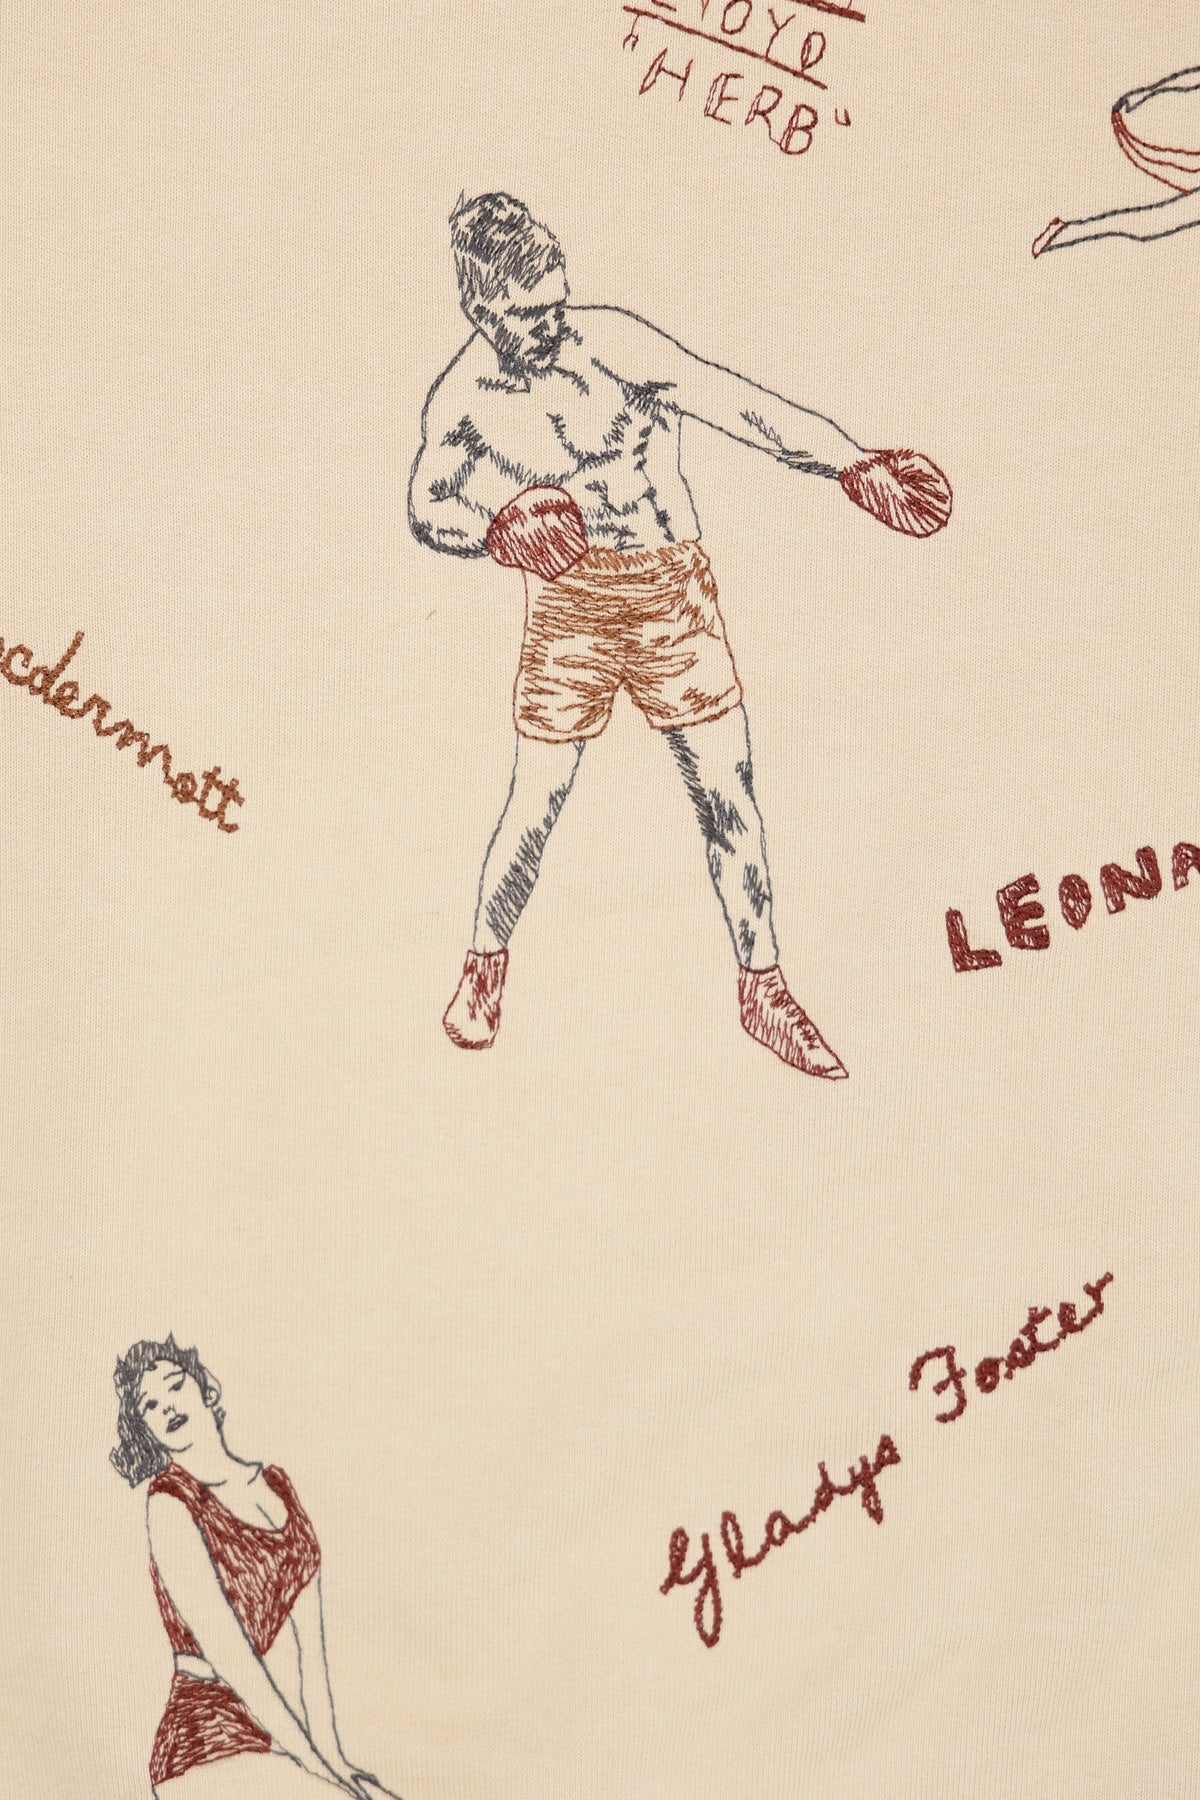 "HERB"
cdermott
LEONA
Gladys Foster